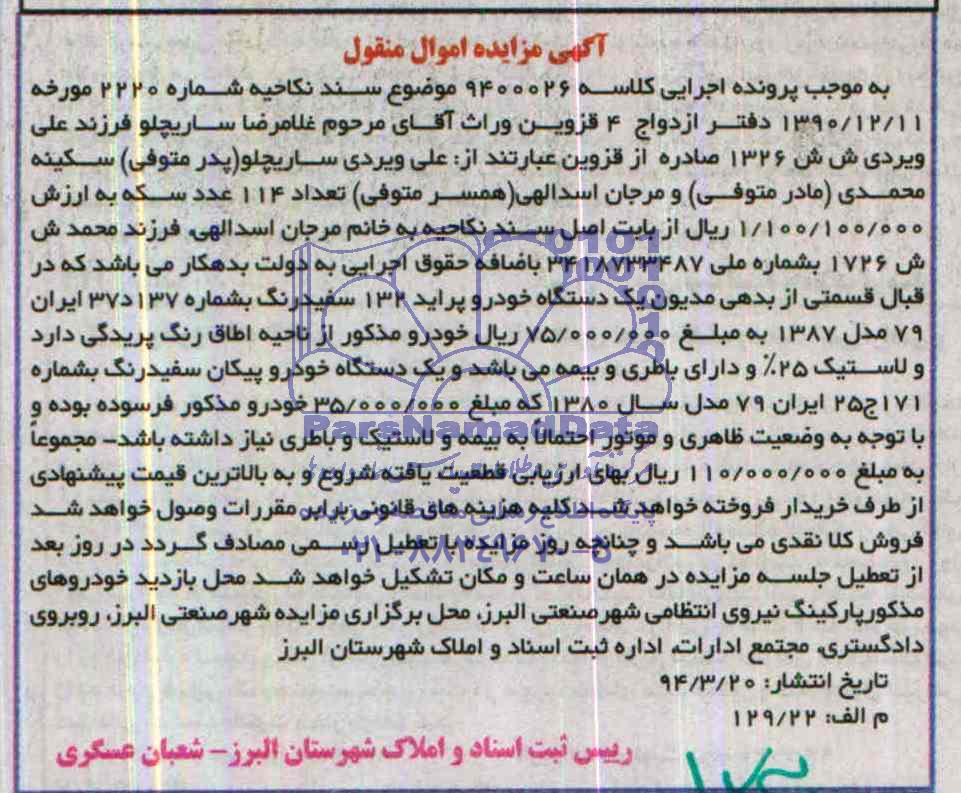 آگهی مزایده اموال منقول
به موجب پرونده اجرایی کلاسه ۹۴۰۰۰۲۶ موضوع سند نکاحیه شماره ۲۲۲۰ مورخه
۱۳۹۰/۱۲/۱۱ دفتر ازدواج ۴ قزوین وراث آقای مرحوم غلامرضا ساریچلو فرزند علی
ویردی ش ش ۱۳۲۶ صادره از قزوین عبارتند از: علی ویردی ساریچلو(پدر متوفی) سکینه
محمدی (مادر متوفی) و مرجان اسدالهی(همسر متوفی) تعداد ۱۱۴ عدد سکه به ارزش
۱/۱۰۰/۱۰۰/۰۰۰ ریال از بابت اصل سند نکاحیه به خانم مرجان اسدالهی، فرزند محمد ش
ش ۱۷۲۶ بشماره ملی ۳۴۱۸۷۲۳۴۸۷ باضافه حقوق اجرایی به دولت بدهکار می باشد که در
قبال قسمتی از بدهی مدیون یک دستگاه خودرو پراید ۱۳۲ سفیدرنگ بشماره ۱۳۷د۳۷ ایران
۷۹ مدل ۱۳۸۷ به مبلغ ۷۵/۰۰۰/۰۰۰ ریال خودرو مذکور از ناحیه اطاق رنگ پریدگی دارد
و لاستیک ۲۵٪ و دارای باطری و بیمه می باشد و یک دستگاه خودرو پیکان سفیدرنگ بشماره
۱۷۱ج۲۵ ایران ۷۹ مدل سال ۱۳۸۰ که مبلغ ۳۵/۰۰۰/۰۰۰ خودرو مذکور فرسوده بوده و
با توجه به وضعیت ظاهری و موتور احتمالاً به بیمه و لاستیک و باطری نیاز داشته باشد- مجموعاً
به مبلغ ۱۱۰/۰۰۰/۰۰۰ ریال بهای ارزیابی قطعیت یافته شروع و به بالاترین قیمت پیشنهادی
از طرف خریدار فروخته خواهد شد کلیه هزینه های قانونی برابر مقررات وصول خواهد شد
فروش کلا نقدی می باشد و چنانچه روز مزایده با تعطیل رسمی مصادف گردد در روز بعد
از تعطیل جلسه مزایده در همان ساعت و مکان تشکیل خواهد شد محل بازدید خودروهای
مذکورپارکینگ نیروی انتظامی شهرصنعتی البرز، محل برگزاری مزایده شهرصنعتی البرز، روبروی
دادگستری، مجتمع ادارات، اداره ثبت اسناد و املاک شهرستان البرز
تاریخ انتشار: ۹۴/۳/۲۰
م الف: ۱۲۹/۲۲
رییس ثبت اسناد و املاک شهرستان البرز- شعبان عسگری
ParsNamadData